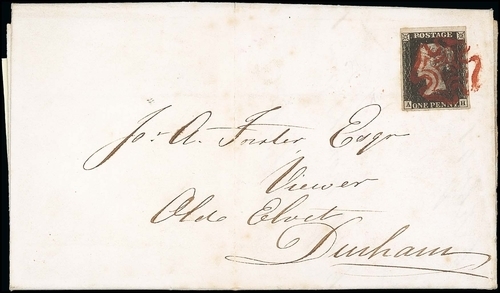 POSTAGE
A ONE PENNY H
Jo. A. Forster Esqr
Viewer
Old Elvet
Durham